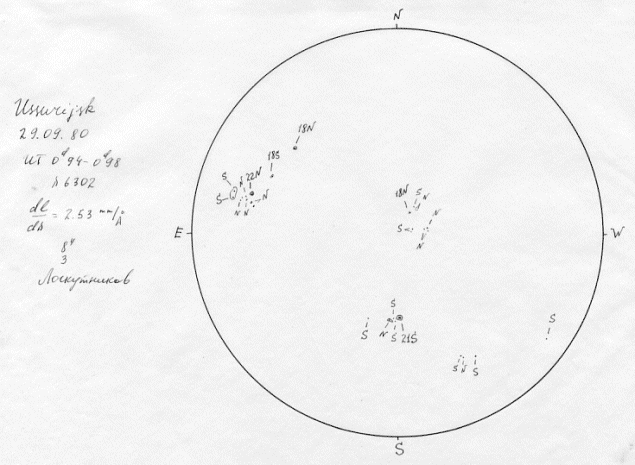 N
Ussurijsk
29.09.80
UT 0ᵈ94-0ᵈ98
λ 6302
dl/dλ = 2.53 mm/Å
3
Лоскутников
18N
18S
S 22N
S
S N
N N
18N S
N
S
N
E
W
S
S
S
N S 21S
S N S
S